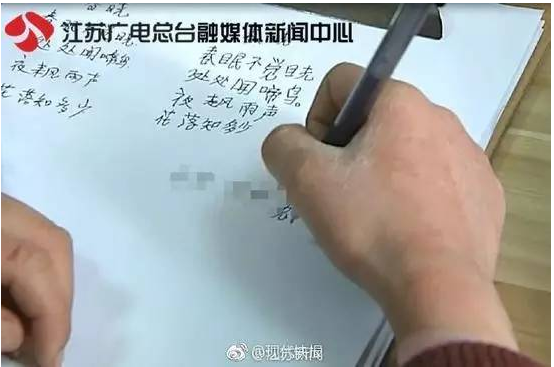 江苏广电总台融媒体新闻中心
晓
春
处处闻啼鸟
夜来风雨声
花落知多少
春眠不觉晓
处处闻啼鸟。
夜来风雨声
花落知多少